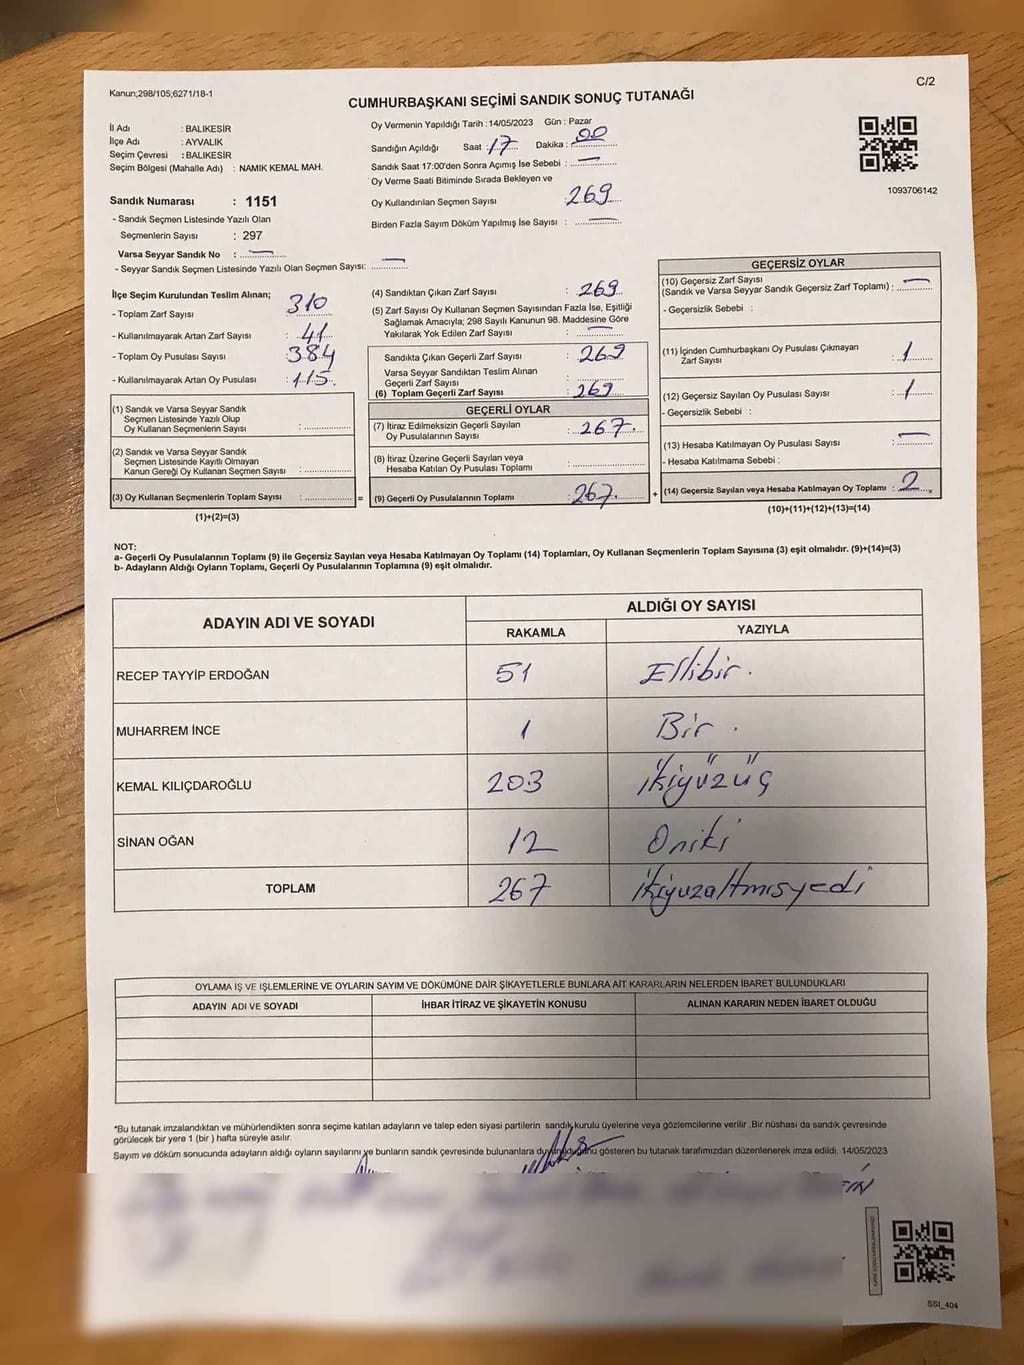 Kanun;298/105;6271/18-1
C/2
CUMHURBAŞKANI SEÇİMİ SANDIK SONUÇ TUTANAĞI
İl Adı : BALIKESİR
İlçe Adı : AYVALIK
Seçim Çevresi : BALIKESİR
Seçim Bölgesi (Mahalle Adı) : NAMIK KEMAL MAH.
Sandık Numarası : 1151
- Sandık Seçmen Listesinde Yazılı Olan
Seçmenlerin Sayısı : 297
Varsa Seyyar Sandık No : —
- Seyyar Sandık Seçmen Listesinde Yazılı Olan Seçmen Sayısı: —
Oy Vermenin Yapıldığı Tarih : 14/05/2023 Gün : Pazar
Sandığın Açıldığı Saat : 17 Dakika : 00
Sandık Saat 17:00'den Sonra Açımış İse Sebebi : —
Oy Verme Saati Bitiminde Sırada Bekleyen ve
Oy Kullandırılan Seçmen Sayısı 269
Birden Fazla Sayım Döküm Yapılmış İse Sayısı : —
1093706142
İlçe Seçim Kurulundan Teslim Alınan;
- Toplam Zarf Sayısı : 310
- Kullanılmayarak Artan Zarf Sayısı : 41
- Toplam Oy Pusulası Sayısı : 384
- Kullanılmayarak Artan Oy Pusulası : 115.
(1) Sandık ve Varsa Seyyar Sandık
Seçmen Listesinde Yazılı Olup
Oy Kullanan Seçmenlerin Sayısı :
(2) Sandık ve Varsa Seyyar Sandık
Seçmen Listesinde Kayıtlı Olmayan
Kanun Gereği Oy Kullanan Seçmen Sayısı :
(3) Oy Kullanan Seçmenlerin Toplam Sayısı : =
(1)+(2)=(3)
(4) Sandıktan Çıkan Zarf Sayısı : 269
(5) Zarf Sayısı Oy Kullanan Seçmen Sayısından Fazla İse, Eşitliği
Sağlamak Amacıyla; 298 Sayılı Kanunun 98. Maddesine Göre
Yakılarak Yok Edilen Zarf Sayısı : —
Sandıkta Çıkan Geçerli Zarf Sayısı : 269
Varsa Seyyar Sandıktan Teslim Alınan
Geçerli Zarf Sayısı :
(6) Toplam Geçerli Zarf Sayısı : 269
GEÇERLİ OYLAR
(7) İtiraz Edilmeksizin Geçerli Sayılan
Oy Pusulalarının Sayısı : 267.
(8) İtiraz Üzerine Geçerli Sayılan veya
Hesaba Katılan Oy Pusulası Toplamı :
(9) Geçerli Oy Pusulalarının Toplamı : 267. +
GEÇERSİZ OYLAR
(10) Geçersiz Zarf Sayısı
(Sandık ve Varsa Seyyar Sandık Geçersiz Zarf Toplamı) : —
- Geçersizlik Sebebi :
(11) İçinden Cumhurbaşkanı Oy Pusulası Çıkmayan
Zarf Sayısı : 1
(12) Geçersiz Sayılan Oy Pusulası Sayısı : 1
- Geçersizlik Sebebi :
(13) Hesaba Katılmayan Oy Pusulası Sayısı : —
- Hesaba Katılmama Sebebi :
(14) Geçersiz Sayılan veya Hesaba Katılmayan Oy Toplamı : 2
(10)+(11)+(12)+(13)=(14)
NOT:
a- Geçerli Oy Pusulalarının Toplamı (9) ile Geçersiz Sayılan veya Hesaba Katılmayan Oy Toplamı (14) Toplamları, Oy Kullanan Seçmenlerin Toplam Sayısına (3) eşit olmalıdır. (9)+(14)=(3)
b- Adayların Aldığı Oyların Toplamı, Geçerli Oy Pusulalarının Toplamına (9) eşit olmalıdır.
ADAYIN ADI VE SOYADI
ALDIĞI OY SAYISI
RAKAMLA YAZIYLA
RECEP TAYYİP ERDOĞAN 51 Ellibir.
MUHARREM İNCE 1 Bir.
KEMAL KILIÇDAROĞLU 203 ikiyüzüç
SİNAN OĞAN 12 Oniki
TOPLAM 267 ikiyuzaltmısyedi
OYLAMA İŞ VE İŞLEMLERİNE VE OYLARIN SAYIM VE DÖKÜMÜNE DAİR ŞİKAYETLERLE BUNLARA AİT KARARLARIN NELERDEN İBARET BULUNDUKLARI
ADAYIN ADI VE SOYADI İHBAR İTİRAZ VE ŞİKAYETİN KONUSU ALINAN KARARIN NEDEN İBARET OLDUĞU
*Bu tutanak imzalandıktan ve mühürlendikten sonra seçime katılan adayların ve talep eden siyasi partilerin sandık kurulu üyelerine veya gözlemcilerine verilir .Bir nüshası da sandık çevresinde
görülecek bir yere 1 (bir ) hafta süreyle asılır.
Sayım ve döküm sonucunda adayların aldığı oyların sayılarını ve bunların sandık çevresinde bulunanlara duyurulduğunu gösteren bu tutanak tarafımızdan düzenlenerek imza edildi. 14/05/2023
SS1_404